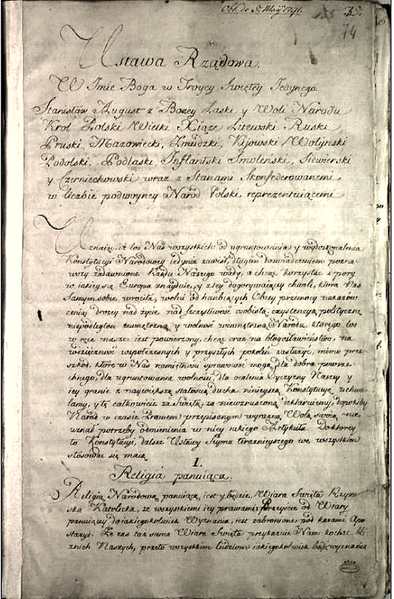 Ustawa Rządowa.
W Imie Boga w Troycy Swiętey Jedynego.
Stanisław August z Bożey Łaski y Woli Narodu
Krol Polski Wielki Xiąże Litewski Ruski
Pruski, Mazowiecki, Zmudzki, Kijowski Wołynski
Podolski, Podlaski Inflantski Smolenski, Siewierski
y Czerniechowski wraz z Stanami Skonfederowanemi
w liczbie podwoyney Narod Polski reprezentuiącemi
Uznaiąc, iż los Nas wszystkich od ugruntowania y wydoskonalenia
Konstytucyi Narodowey iedynie zawisł, długim doswiadczeniem pozna-
wszy zadawnione Rządu Naszego wady, a chcąc korzystac z pory
w iakiey się Europa znayduie, y z tey dogorywaiącey chwili, ktora Nas
Samym sobie wrociła, wolni od hanbiących Obcey przemocy nakazow
ceniąc drożey nad życie nad szczęśliwość osobistą, exystencyą polityczną
niepodległość zewnętrzną, y wolność wewnętrzną Narodu, ktorego los
w ręce nasze iest powierzony, chcąc oraz na błogosławieństwo, na
wdzięczność wspołczesnych y przyszłych pokoleń zasłużyć, mimo prze-
szkod, ktore w Nas namiętności sprawować mogą, dla dobra powsze-
chnego, dla ugruntowania wolności, dla ocalenia Oyczyzny Naszey y
iey granic z naywiększą stałością ducha ninieyszą Konstytucyę uchwa-
lamy, y tę całkowicie za świętą, za niewzruszoną deklaruiemy, dopokiby
Narod w czasie Prawem przepisanym wyraźną Wolą swoią nie
uznał potrzeby odmienienia w niey iakiego Artykułu. Do ktorey
to Konstytucyi, dalsze Ustawy Seymu teraznieyszego we wszystkim
stosować się maią.
I.
Religia panuiąca.
Religią Narodową panuiącą iest y będzie Wiara Swięta Rzym-
ska Katolicka, ze wszystkiemi iey prawami, Przeyscie od Wiary
panuiącey do iakiegokolwiek Wyznania, iest zabronione pod karami Apo-
stazyi. Ze zas taż sama Wiara Swięta przykazuie Nam kochac bli-
znich Naszych, przeto wszystkim ludziom iakiegokolwiek bądź wyznania